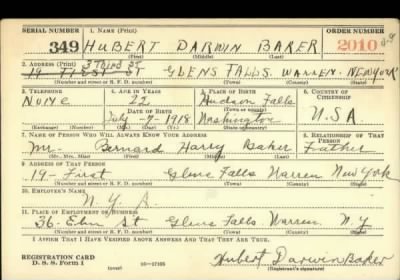 SERIAL NUMBER 1. NAME (Print) ORDER NUMBER
349 HUBERT DARWIN BAKER 2010
(First) (Middle) (Last)
2. ADDRESS (Print) 3 Third St
19 - FIRST ST GLENS FALLS. WARREN - NEW YORK
(Number and street or R. F. D. number) (Town) (County) (State)
3. TELEPHONE 4. AGE IN YEARS 5. PLACE OF BIRTH 6. COUNTRY OF CITIZENSHIP
None 22 Hudson Falls
DATE OF BIRTH (Town or county)
July - 7 - 1918 Washington U.S.A
(Exchange) (Number) (Mo.) (Day) (Yr.) (State or country)
7. NAME OF PERSON WHO WILL ALWAYS KNOW YOUR ADDRESS 8. RELATIONSHIP OF THAT PERSON
Mr. Bernard Harry Baker Father
(Mr., Mrs., Miss) (First) (Middle) (Last)
9. ADDRESS OF THAT PERSON
19 - First Glens Falls Warren New York
(Number and street or R. F. D. number) (Town) (County) (State)
10. EMPLOYER'S NAME
N. Y. A.
11. PLACE OF EMPLOYMENT OR BUSINESS
36 - Elm St Glens Falls Warren. N. Y
(Number and street or R. F. D. number) (Town) (County) (State)
I AFFIRM THAT I HAVE VERIFIED ABOVE ANSWERS AND THAT THEY ARE TRUE.
REGISTRATION CARD
D. S. S. Form 1 (over) 16—17105 Hubert Darwin Baker
(Registrant's signature)